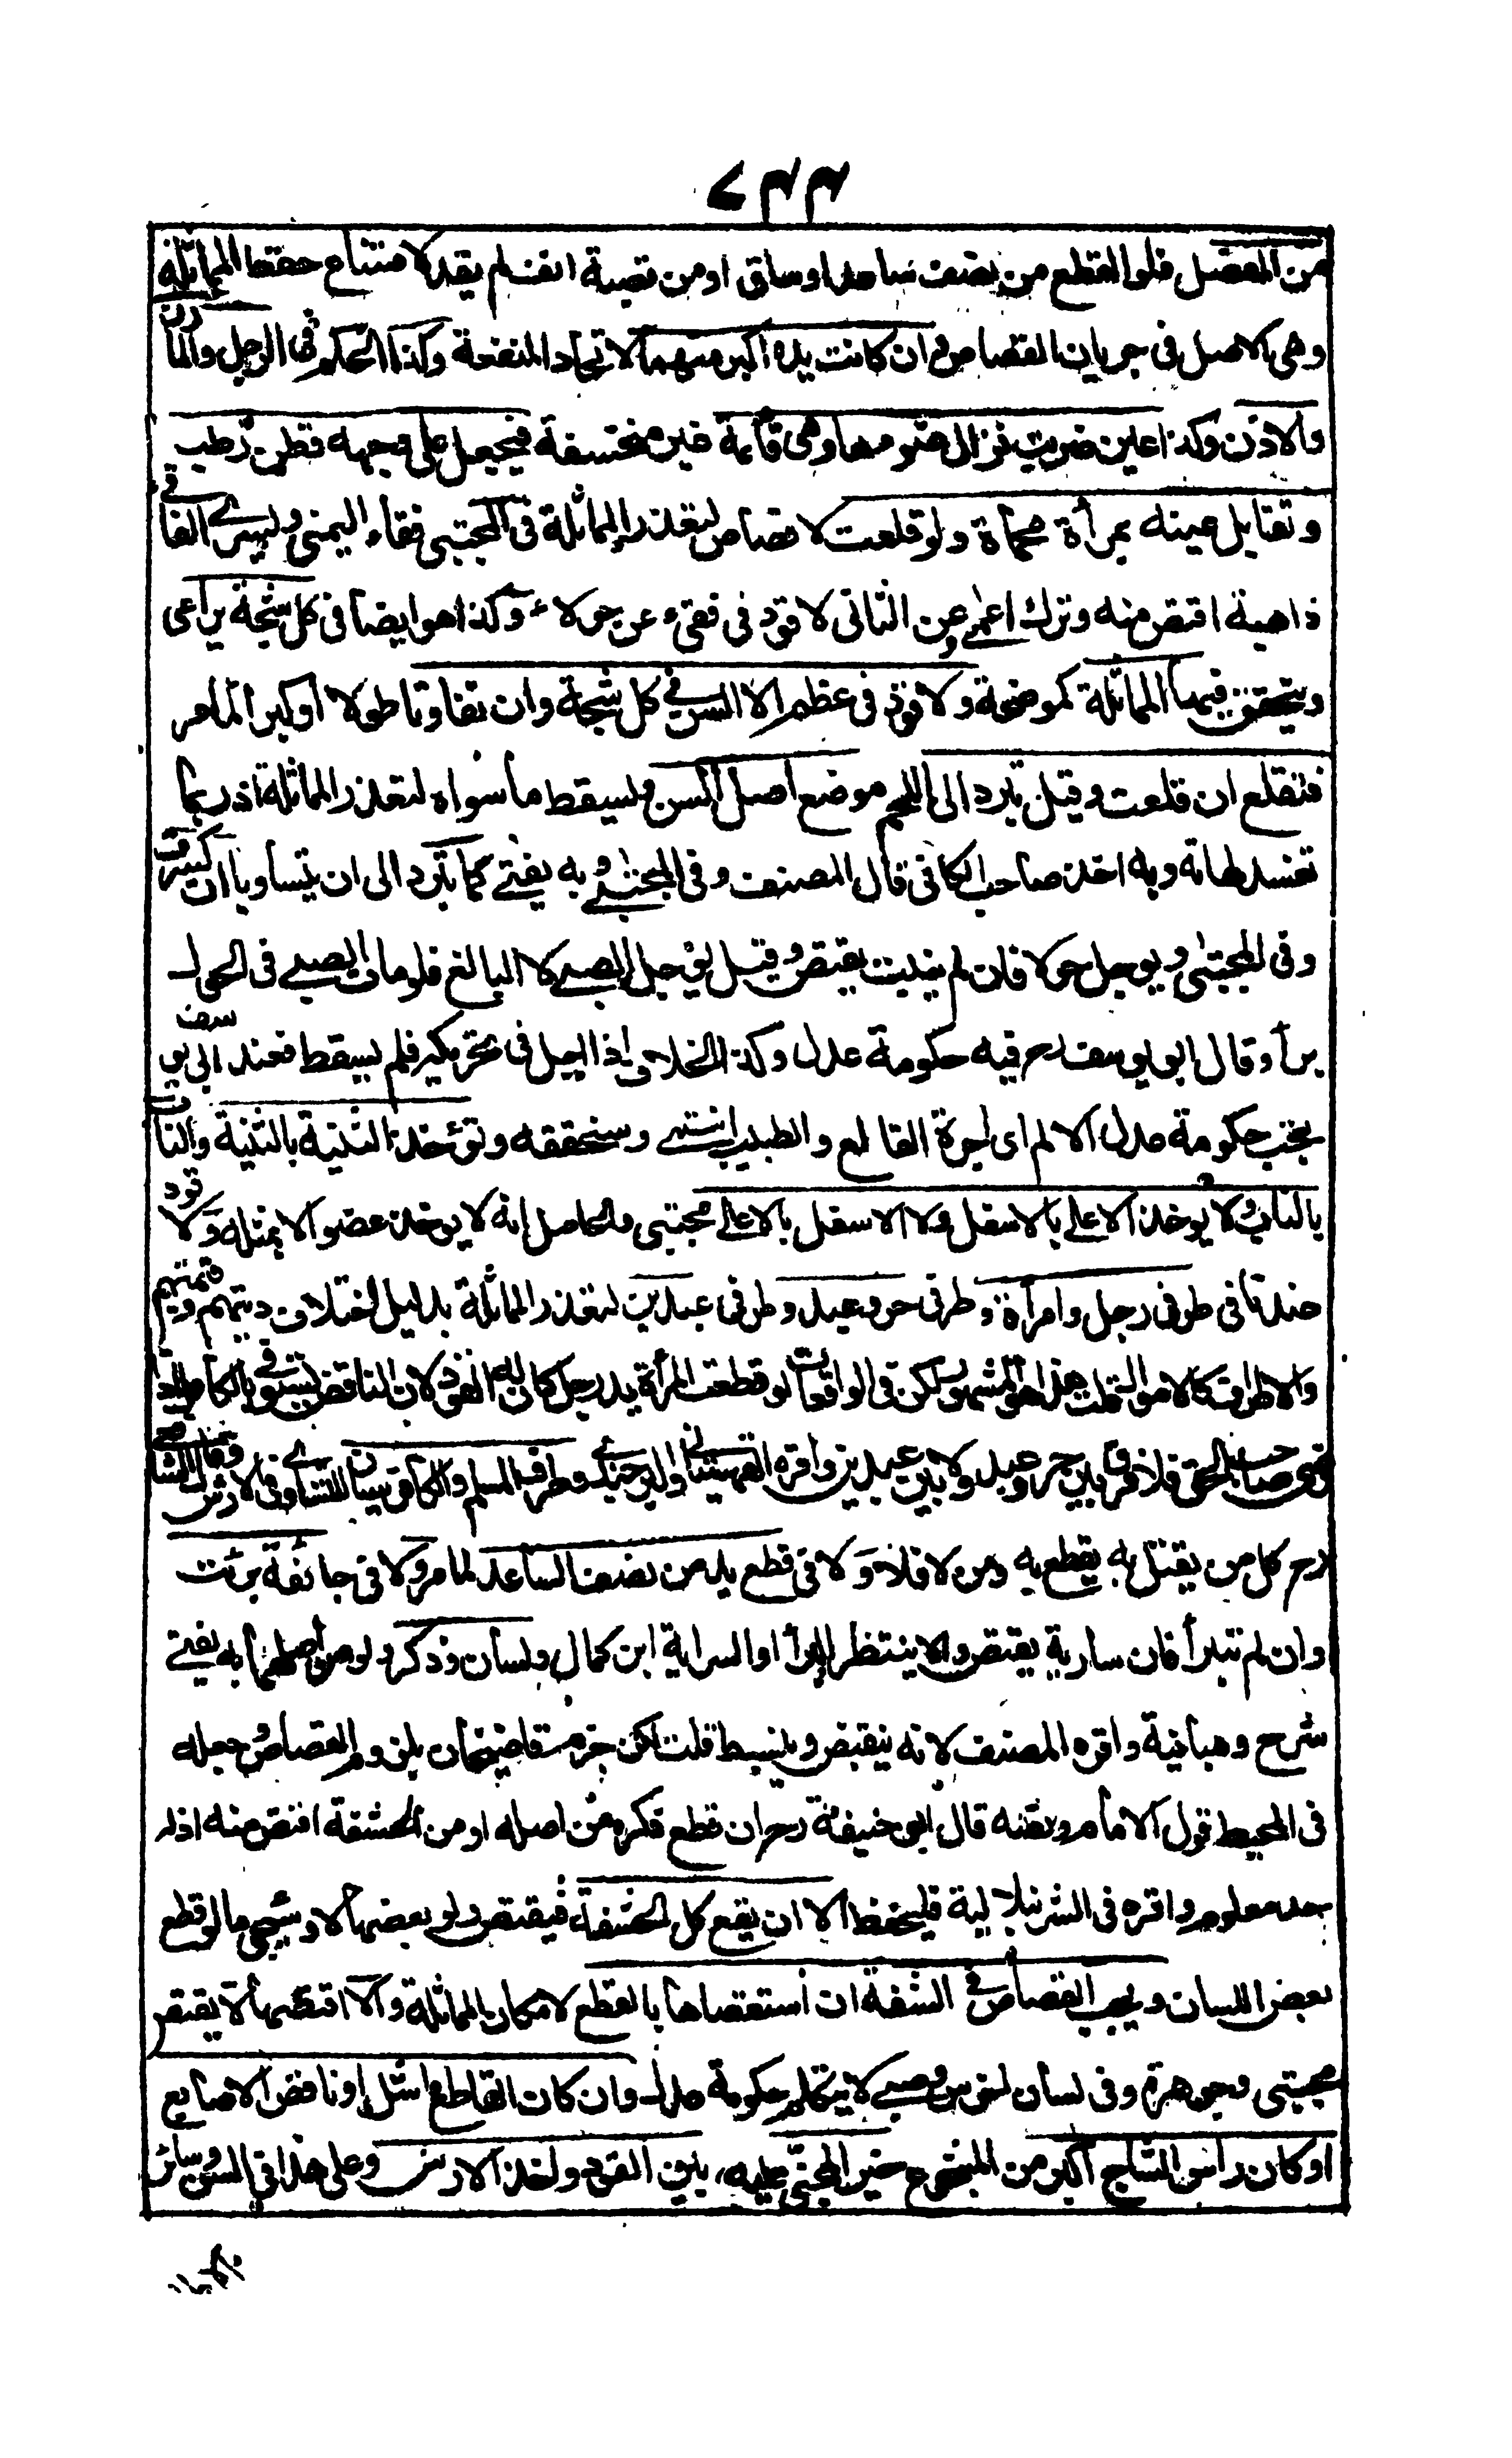 ٧٣٣
من المفصل فلو القطع من نصف ساعد او ساق او من قصبة انف لم يقد لامتناع حفظ المماثلة
وهى الاصل فى جريان القصاص وان كانت يده اكبر منهما لاتحاد المنفعة وكذا الحكم فى الرجل والمارن
والاذن وكذا عين ضربت فزال ضوءها وهى قائمة غير منخسفة فيجعل على وجهه قطن رطب
وتقابل عينه بمرأة محماة ولو قلعت لا قصاص لتعذر المماثلة فى المجتبى فقاء اليمنى ويسرى الفاقى
ذاهبة اقتص منه وترك اعمى وعن الثانى لا قود فى فقىء عين حولاء وكذا هو ايضا فى كل شجة يراعى
ويتحقق فيها المماثلة كموضحة ولا قود فى عظم الا السن فى كل شجة وان تفاوتا طولا او كبرا لما مر
فتقلع ان قلعت وقيل تبرد الى اللحم موضع اصل السن ويسقط ما سواه لتعذر المماثلة اذ ربما
تفسد لهاته وبه اخذ صاحب الكافى قال المصنف وفى المجتبى وبه يفتى كما تبرد الى ان يتساويا ان كسرت
وفى المجتبى ويوجل حولا فان لم ينبت يقتص وقيل يؤجل الصبى لا البالغ فلو مات الصبى فى الحول
برأ وقال ابو يوسف رح فيه حكومة عدل وكذا الخلاف اذا اجل فى تحريكه فلم يسقط فعند ابى يوسف
تجب حكومة عدل الالم اى اجرة القالع والطبيب انتهى وسنحققه وتؤخذ الثنية بالثنية والناب
بالناب ولا يوخذ الاعلى بالاسفل ولا الاسفل بالاعلى مجتبى والحاصل انه لا يوخذ عضو الا بمثله ولا قود
عندنا فى طرفى رجل وامرأة وطرفى حر وعبد وطرفى عبدين لتعذر المماثلة بدليل اختلاف ديتهم وقيمتهم
والاطراف كالاموال قلت هذا هو المشهور لكن فى الواقعات لو قطعت المرأة يد رجل كان له القود لان الناقص يستوفى بالكامل اذا
رضى صاحب الحق فلا فرق بين حر وعبد ولا بين عبدين واقره القهستانى والبرجندى وطرف المسلم والكافر سيان للتساوى فى الارش وقال الشافعى
رح كل من يقتل به يقطع به ومن لا فلا ولا فى قطع يد من نصف الساعد لما مر ولا فى جائفة برئت
وان لم تبرأ فان سارية يقتص والا ينتظر البرأ او السراية ابن كمال ولسان وذكر ولو من اصلهما به يفتى
شرح وهبانية واقره المصنف لانه ينقبض وينبسط قلت لكن جزم قاضيخان بلزوم القصاص وجعله
فى المحيط قول الامام ونصه قال ابو حنيفة رح ان قطع ذكره من اصله او من الحشفة اقتص منه اذ له
حد معلوم واقره فى الشرنبلالية فليحفظ الا ان يقع كل الحشفة فيقتص ولو بعضها لا وسيجى ما لو قطع
بعض اللسان ويجب القصاص فى الشفة ان استقصاها بالقطع لامكان المماثلة والا اقتصها لا يقتص
مجتبى وجوهرة وفى لسان اخرس وصبى لا يتكلم حكومة عدل وان كان القاطع اشل او ناقص الاصابع
او كان رأس الشاج اكبر من المشجوج خير المجنى عليه بين القود واخذ الارش وعلى هذا فى السن وسائر